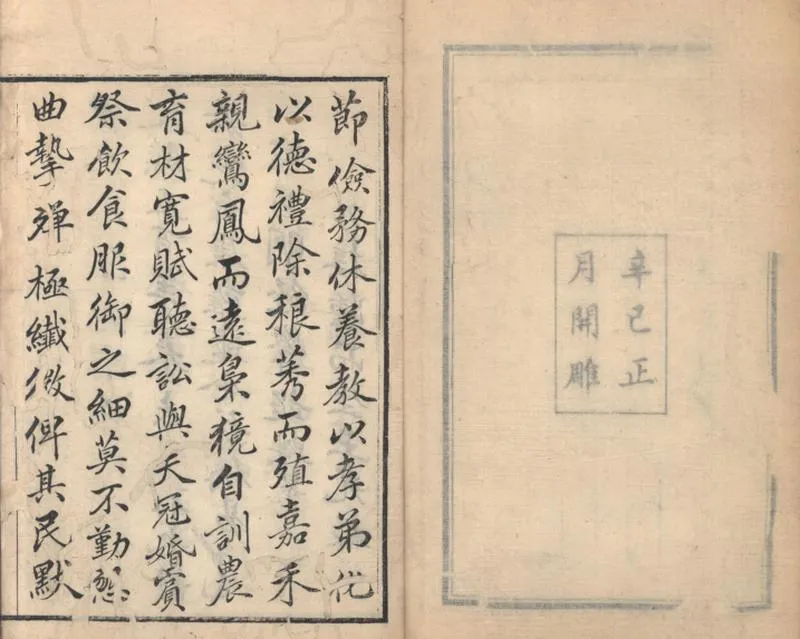 辛巳正
月開雕
節儉務休養教以孝弟化
以德禮除稂莠而殖嘉禾
親鸞鳳而遠梟獍自訓農
育材寬賦聽訟與夫冠婚賓
祭飲食服御之細莫不勤懇
曲摯殫極纖微俾其民默